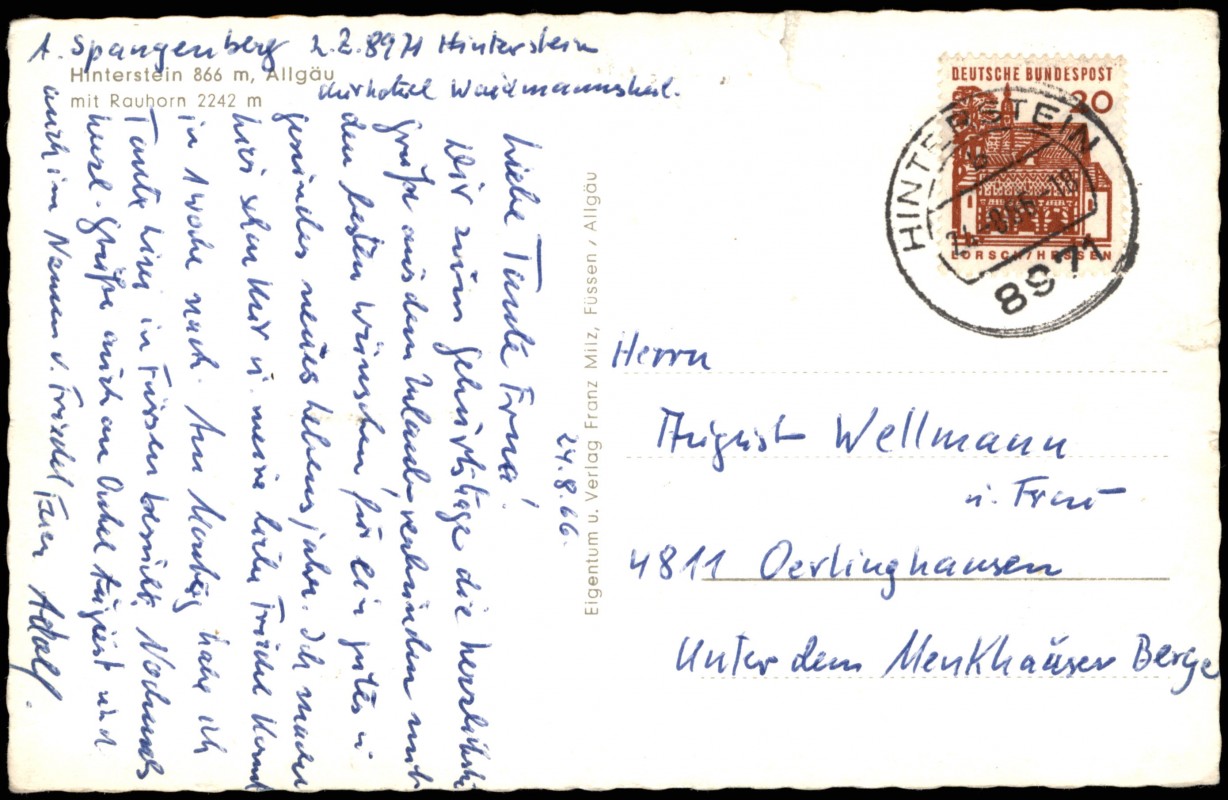 A. Spangenberg z.Z. 8971 Hinterstein
Kurhotel Waidmannsheil.
Hinterstein 866 m, Allgäu
mit Rauhorn 2242 m
24.8.66.
Liebe Tante Erna!
Dir zum Geburtstage die herzlichsten
Grüße aus dem Urlaub, verbunden mit
den besten Wünschen für ein gutes u.
gesundes neues Lebensjahr. Ich mache
hier seit Kur u. meine liebe Friedel kommt
in 1 Woche nach. Am Montag habe ich
Tante in Füssen besucht. Nochmals
herzl. Grüße auch an Onkel August und
auch im Namen v. Friedel Euer Adolf.
Eigentum u. Verlag Franz Milz, Füssen / Allgäu
DEUTSCHE BUNDESPOST
20
LORSCH/HESSEN
HINTERSTEIN
8971
Herrn
August Wellmann
u. Frau
4811 Oerlinghausen
Unter dem Menkhäuser Berge